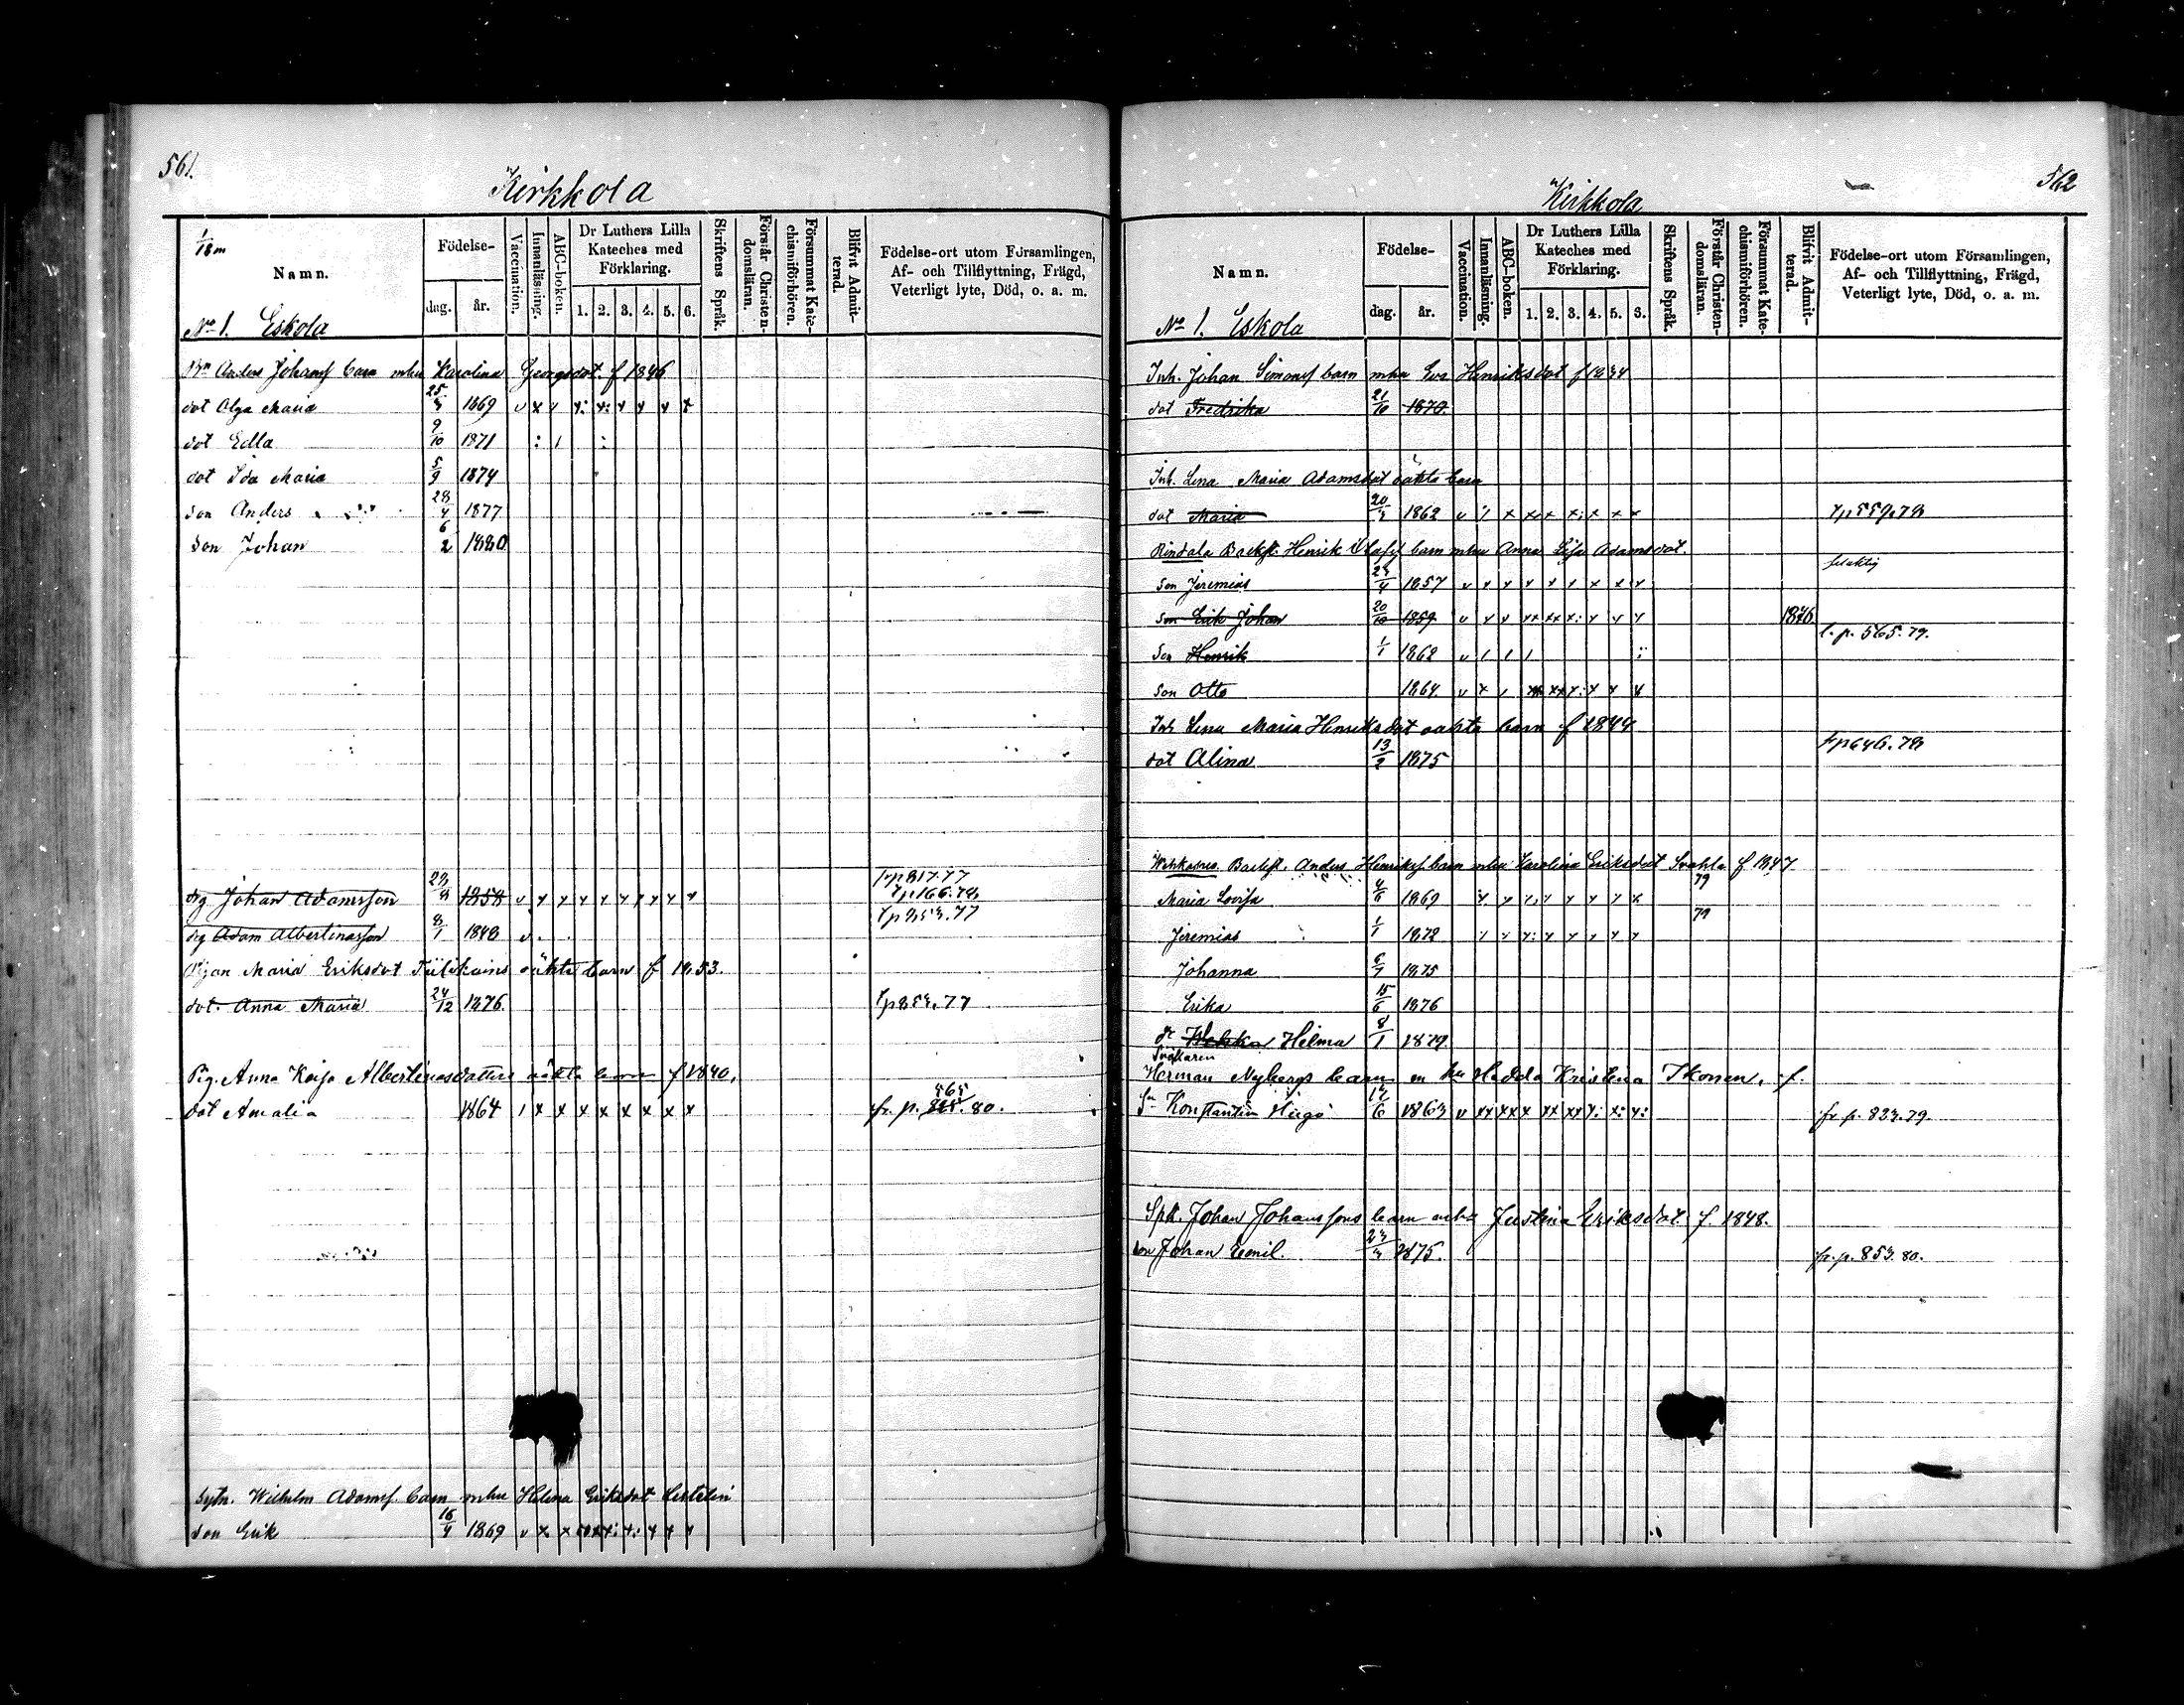 561.
Kirkkola
1/18 m
Namn.
Födelse-
dag.
år.
Vaccination.
Innanläsning.
ABC-boken.
Dr Luthers Lilla Kateches med Förklaring.
1. 2. 3. 4. 5. 6.
Skriftens Språk.
Förstår Christendomsläran.
Försummat Katechismiförhören.
Blifvit Admitterad.
Födelse-ort utom Församlingen, Af- och Tillflyttning, Frägd, Veterligt lyte, Död, o. a. m.
No 1. Eskola
Anders Johansf barn mhu Karolina Georgsdot. f 1846
dot Olga Maria 1869
dot Edla 9/10 1871
dot Ida Maria 5/9 1874
son Anders 28/4 1877
son Johan 6/2 1880
frp 817.77
drg Johan Adamsson 1858 tp 166.78
drg Adam Albertinasson 8/1 1848 tp 853.77
Pigan Maria Eriksdot oäkta barn f 1853.
dot. Anna Maria 24/12 1876 tp 853.77
Pig. Anna Kajsa Albertinasdotters oäkta barn f 1840.
dot Amalia 1864 fr. p. 565. 80.
Sytn. Wilhelm Adamsf. barn mhu Helena Eriksdot
son Erik 16/4 1869
562
Kirkkola
Namn.
Födelse-
dag.
år.
Vaccination.
Innanläsning.
ABC-boken.
Dr Luthers Lilla Kateches med Förklaring.
1. 2. 3. 4. 5. 6.
Skriftens Språk.
Förstår Christendomsläran.
Försummat Katechismiförhören.
Blifvit Admitterad.
Födelse-ort utom Församlingen, Af- och Tillflyttning, Frägd, Veterligt lyte, Död, o. a. m.
No 1. Eskola
Inh. Johan Simonsf barn mhu Eva Henriksdot f 1834
dot Fredrika 21/10 1870.
Inh. Lena Maria Adamsdot oäkta barn
dot Maria 1862 tp 559.78
Rindala Backst. Henrik Olofsf barn mhu Anna Lisa Adamsdot.
son Jeremias 1857
son Erik Johan 20/10 1859 1876
son Henrik 1/1 1862 t. p. 565. 79.
son Otto 1864
Inh Lena Maria Henriksdot oäkta barn f 1844
dot Alina 13/2 1875 tp 646.78
Backst. Anders Henriksf. barn mhu Karolina Eriksdot f 1847
Maria Lovisa 4/6 1869 79
Jeremias 1/1 1872 79
Johanna 1875
Erika 15/6 1876
Helma 8/1 1879.
Herman Nybergs barn m hu Hedda Kristina Ikonen. f.
Sn Konstantin Hugo 12/6 1863 fr p. 823.79.
Johan Johanssons barn mhu Justina Eriksdot. f. 1848.
son Johan Emil. 1875. fr. p. 853. 80.